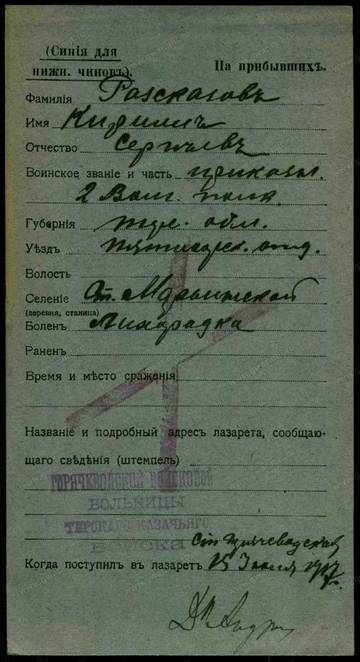 (Синія для
нижн. чиновъ).
На прибывшихъ.
Фамилія Разсказовъ
Имя Кириллъ
Отчество Сергѣевъ
Воинское званіе и часть приказн.
2 Волг. полка
Губернія Тер. обл.
Уѣздъ Пятигорск. отд.
Волость
Селеніе Ст. Марьинской
(деревня, станица)
Боленъ Лихорадка
Раненъ
Время и мѣсто сраженія
Названіе и подробный адресъ лазарета, сообщаю-
щаго свѣдѣнія (штемпель)
ГОРЯЧЕВОДСКОЙ ВОЙСКОВОЙ
БОЛЬНИЦЫ
ТЕРСКАГО КАЗАЧЬЯГО
ВОЙСКА
ст. Горячеводская
Когда поступилъ въ лазаретъ 15 Іюля 1917 г.